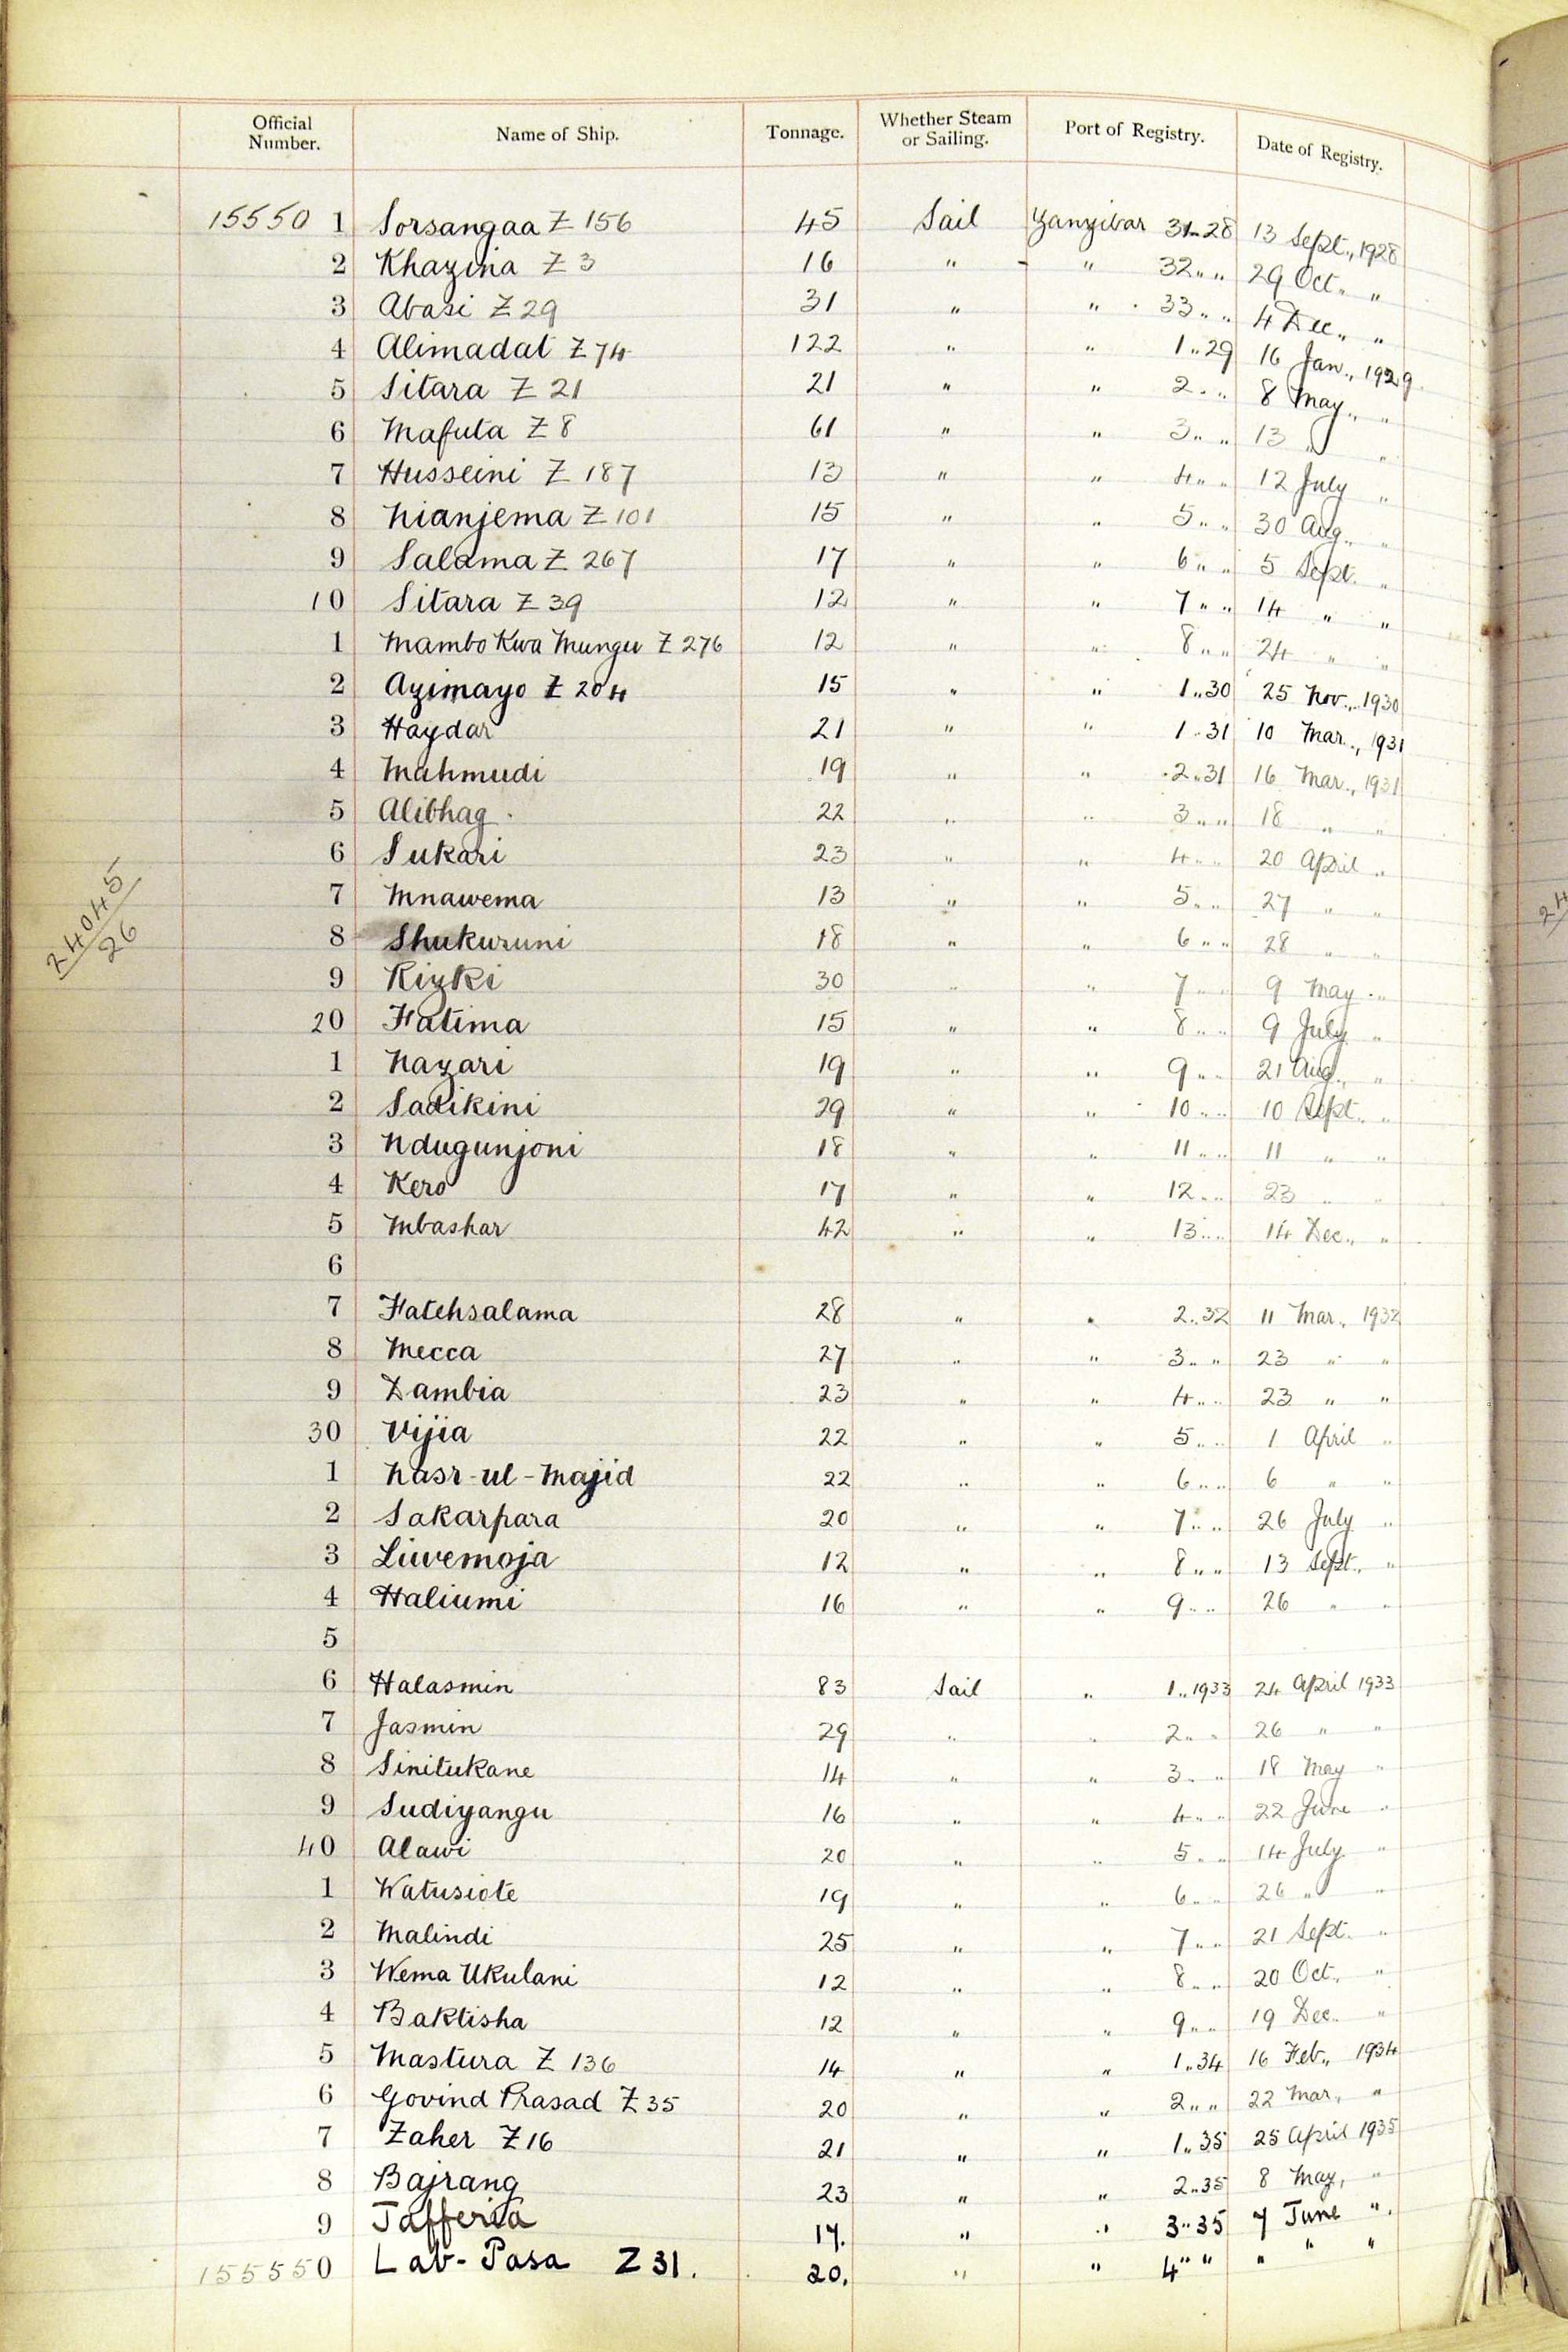 Official Number. Name of Ship. Tonnage. Whether Steam or Sailing. Port of Registry. Date of Registry.
15550 1 Sorsangaa Z 156 45 Sail Zanzibar 31..28 13 Sept., 1928
2 Khazina Z 3 16 " " 32 .. .. 29 Oct. "
3 Abasi Z 29 31 " " 33 .. .. 4 Dec., "
4 Alimadat Z 74 122 " " 1..29 16 Jan., 1929
5 Sitara Z 21 21 " " 2 .. .. 8 May, "
6 Mafuta Z 8 61 " " 3 .. .. 13 " "
7 Husseini Z 187 13 " " 4 .. .. 12 July "
8 Nianjema Z 101 15 " " 5 .. .. 30 Aug., "
9 Salama Z 267 17 " " 6 .. .. 5 Sept. "
10 Sitara Z 39 12 " " 7 .. .. 14 " "
1 Mambo Kwa Mungu Z 276 12 " " 8 .. .. 24 " "
2 Azimayo Z 204 15 " " 1..30 25 Nov., 1930
3 Haydar 21 " " 1..31 10 Mar., 1931
4 Mahmudi 19 " " 2..31 16 Mar., 1931
5 Alibhag 22 " " 3 .. .. 18 " "
6 Sukari 23 " " 4 .. .. 20 April "
7 Mnawema 13 " " 5 .. .. 27 " "
8 Shukuruni 18 " " 6 .. .. 28 " "
9 Rizki 30 " " 7 .. .. 9 May "
20 Fatima 15 " " 8 .. .. 9 July "
1 Nazari 19 " " 9 .. .. 21 Aug., "
2 Sadikini 29 " " 10 .. .. 10 Sept. "
3 Ndugunjoni 18 " " 11 .. .. 11 " "
4 Kero 17 " " 12 .. .. 23 " "
5 Mbashar 42 " " 13 .. .. 14 Dec., "
6
7 Fatehsalama 28 " " 2..32 11 Mar., 1932
8 Mecca 27 " " 3 .. .. 23 " "
9 Zambia 23 " " 4 .. .. 23 " "
30 Vijia 22 " " 5 .. .. 1 April "
1 Nasr-ul-Majid 22 " " 6 .. .. 6 " "
2 Sakarpara 20 " " 7 .. .. 26 July "
3 Liwemoja 12 " " 8 .. .. 13 Sept., "
4 Haliumi 16 " " 9 .. .. 26 " "
5
6 Halasmin 83 Sail " 1..1933 24 April 1933
7 Jasmin 29 " " 2 .. .. 26 " "
8 Sinitukane 14 " " 3 .. .. 18 May "
9 Sudiyangu 16 " " 4 .. .. 22 June "
40 Alawi 20 " " 5 .. .. 14 July "
1 Watusiote 19 " " 6 .. .. 26 " "
2 Malindi 25 " " 7 .. .. 21 Sept. "
3 Wema Ukulani 12 " " 8 .. .. 20 Oct., "
4 Baktisha 12 " " 9 .. .. 19 Dec. "
5 Mastura Z 136 14 " " 1..34 16 Feb., 1934
6 Govind Prasad Z 35 20 " " 2 .. .. 22 Mar., "
7 Zaher Z 16 21 " " 1..35 25 April 1935
8 Bajrang 23 " " 2..35 8 May, "
9 Jafferia 17. " " 3..35 7 June "
155550 Lab-Pasa Z 31. 20. " " 4 " " " " "
24045/26
24